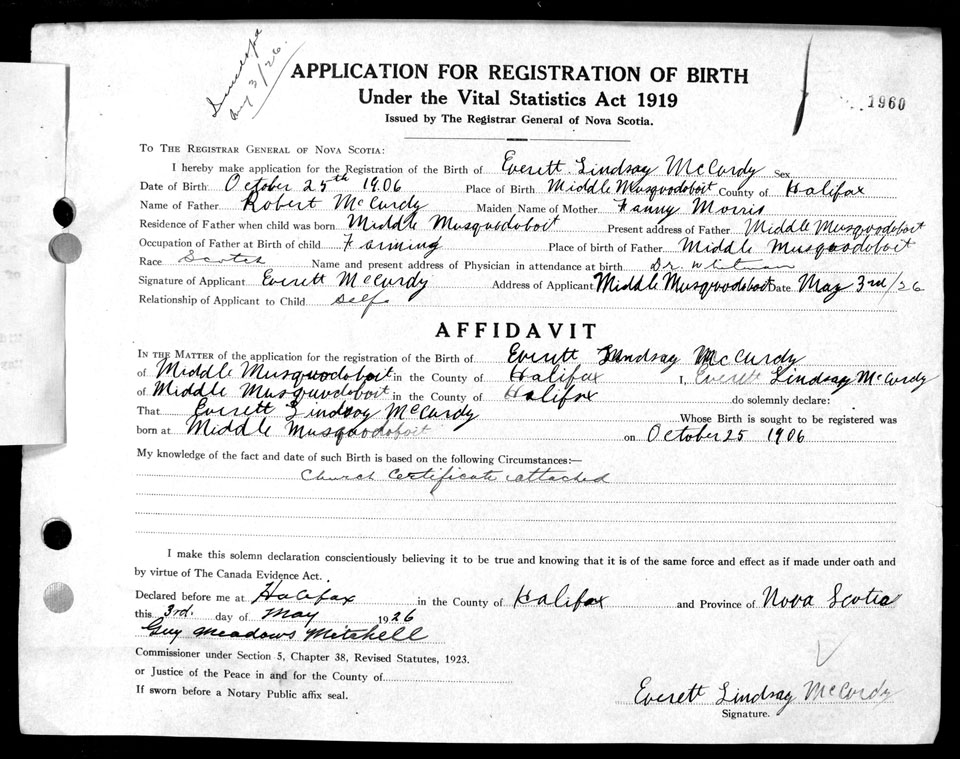 Aug 3/26.
APPLICATION FOR REGISTRATION OF BIRTH
Under the Vital Statistics Act 1919
Issued by The Registrar General of Nova Scotia.
1960
To The Registrar General of Nova Scotia:
I hereby make application for the Registration of the Birth of Everett Lindsay McCurdy Sex
Date of Birth October 25th 1906 Place of Birth Middle Musquodoboit County of Halifax
Name of Father Robert McCurdy Maiden Name of Mother Fanny Morris
Residence of Father when child was born Middle Musquodoboit Present address of Father Middle Musquodoboit
Occupation of Father at Birth of child Farming Place of birth of Father Middle Musquodoboit
Race Scotch Name and present address of Physician in attendance at birth Dr. Whitman
Signature of Applicant Everett McCurdy Address of Applicant Middle Musquodoboit Date May 3rd/26
Relationship of Applicant to Child Self
AFFIDAVIT
In the Matter of the application for the registration of the Birth of Everett Lindsay McCurdy
of Middle Musquodoboit in the County of Halifax I, Everett Lindsay McCurdy
of Middle Musquodoboit in the County of Halifax do solemnly declare:
That Everett Lindsay McCurdy Whose Birth is sought to be registered was
born at Middle Musquodoboit on October 25 1906
My knowledge of the fact and date of such Birth is based on the following Circumstances:—
Church Certificate attached
I make this solemn declaration conscientiously believing it to be true and knowing that it is of the same force and effect as if made under oath and
by virtue of The Canada Evidence Act.
Declared before me at Halifax in the County of Halifax and Province of Nova Scotia
this 3rd. day of May 1926
Guy Meadows Mitchell
Commissioner under Section 5, Chapter 38, Revised Statutes, 1923.
or Justice of the Peace in and for the County of
If sworn before a Notary Public affix seal.
Everett Lindsay McCurdy
Signature.